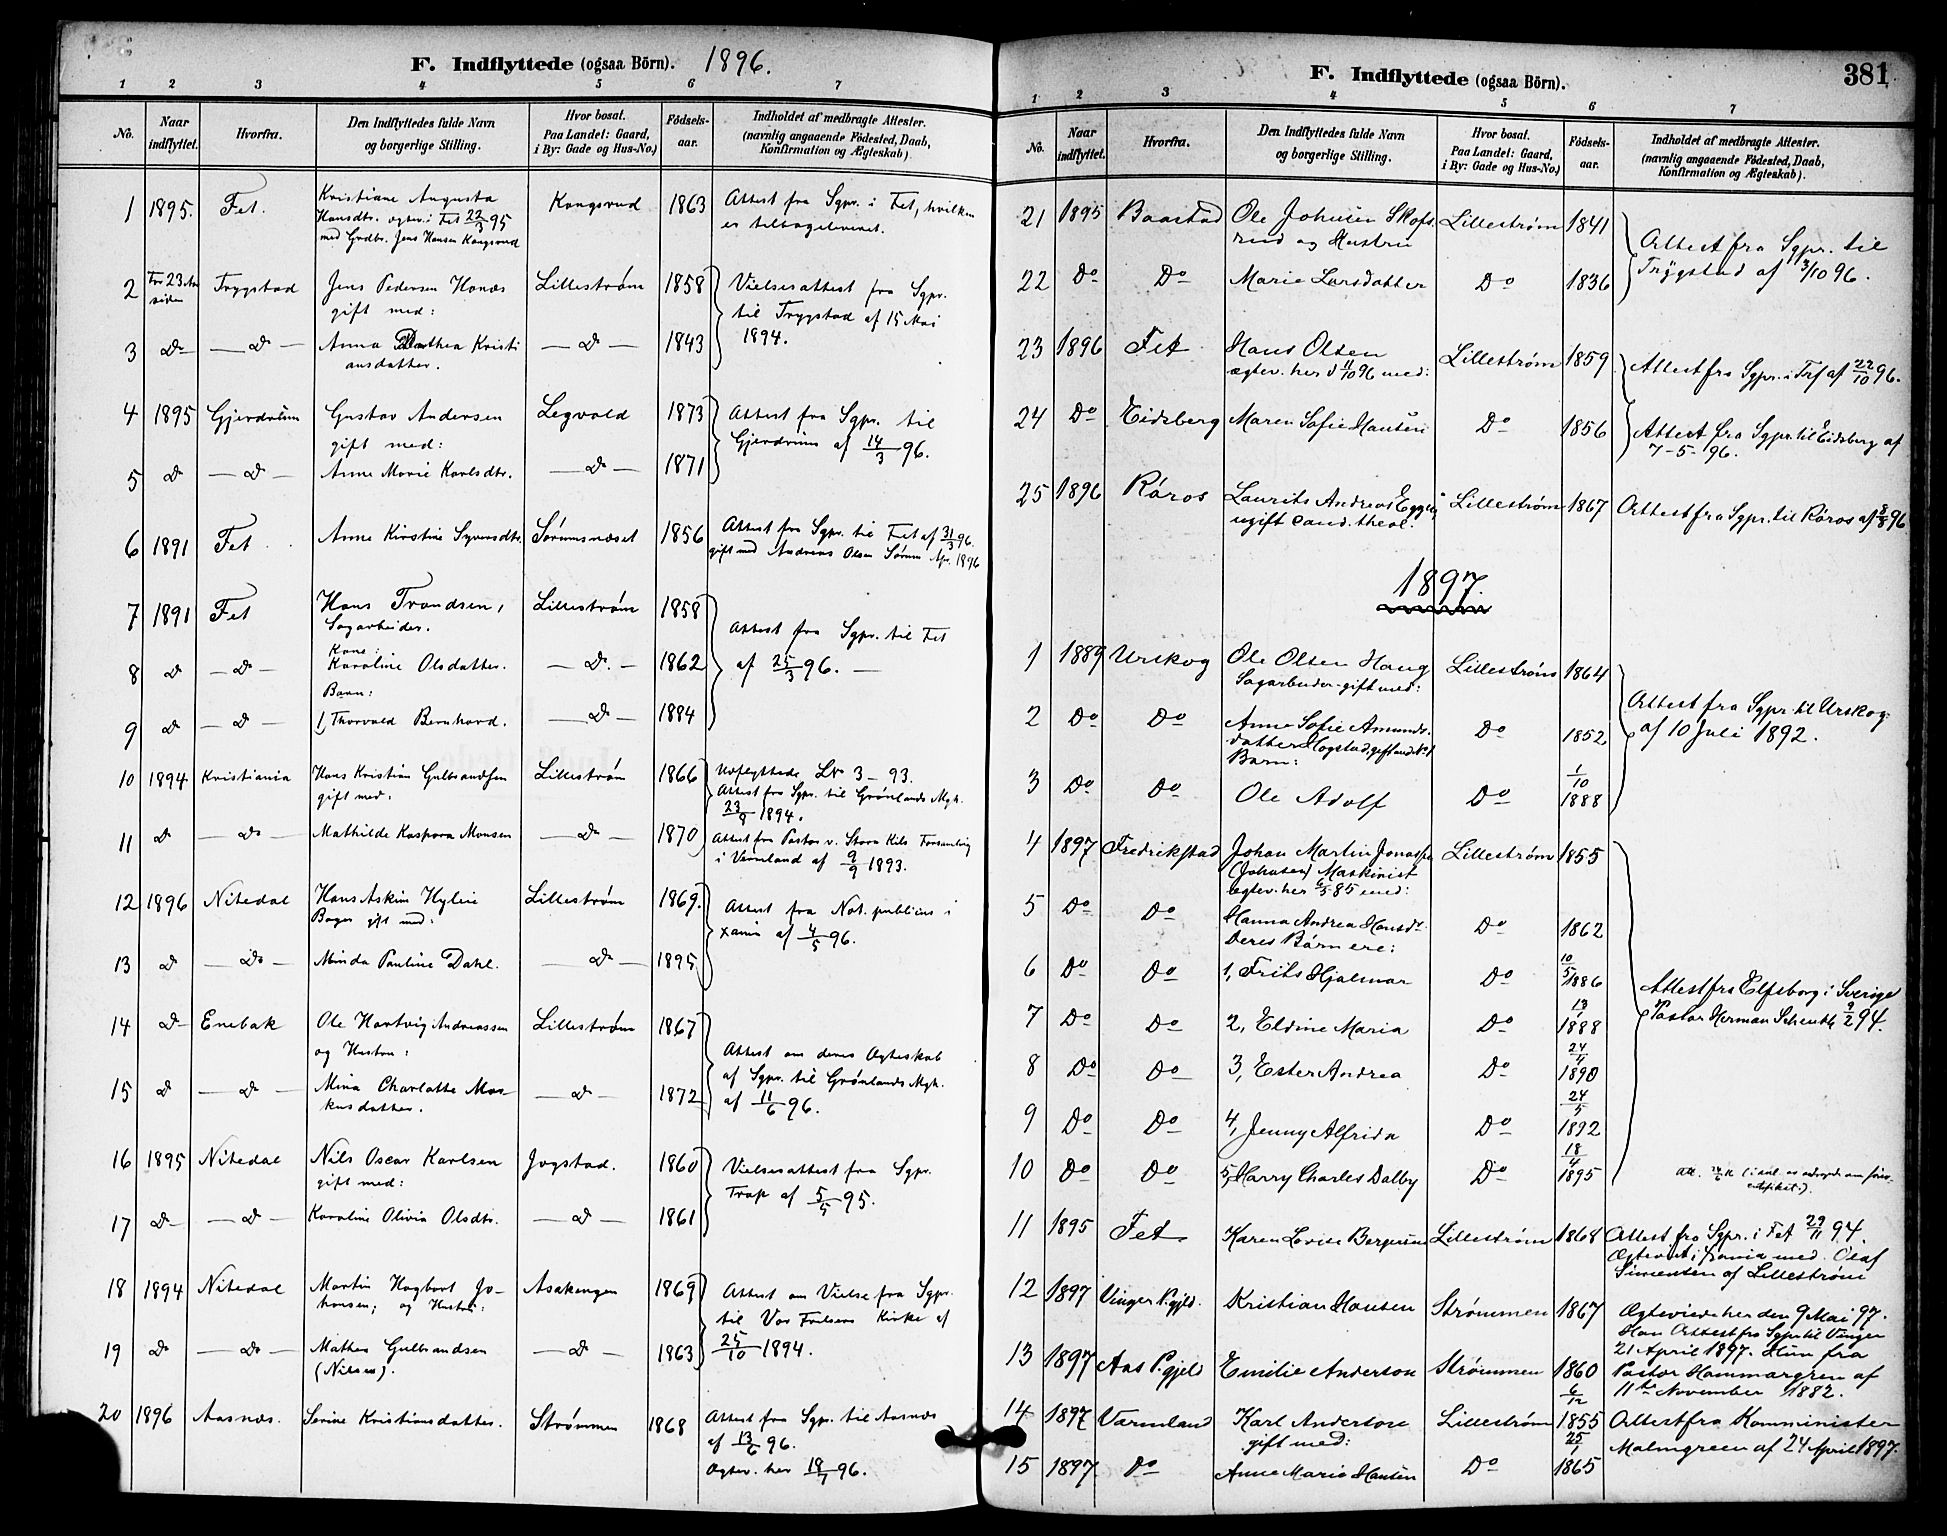 F. Indflyttede (ogsaa Börn). 1896.
1 2 3 4 5 6 7
No. Naar indflyttet. Hvorfra. Den Indflyttedes fulde Navn og borgerlige Stilling. Hvor bosat. Paa Landet: Gaard, i By: Gade og Hus-No.) Födsels-aar. Indholdet af medbragte Attester. (navnlig angaaende Födested, Daab, Konfirmation og Ægteskab).
1 1895. Fet. Kristiane Augusta Kongsrud 1863 Attest fra Sgpr. i Fet, hvilken
Hansdtr. ægtev. i Fet 22/3 95 er tilbageleveret.
med Grdbr. Jens Hansen Kongsrud
2 For 23 Aar siden Trygstad Jens Pedersen Hanæs Lillestrøm 1858 Vielsesattest fra Sgpr.
gift med: til Trygstad af 15 Mai
3 Do Do Anna Dorthea Kristi Do 1843 1894.
ansdatter.
4 1895 Gjerdrum Gustav Andersen Legvold 1873 Attest fra Sgpr. til
gift med: Gjerdrum af 14/3 96.
5 Do Do Anne Marie Karlsdtr. Do 1871
6 1891 Fet Anne Kirstine Syversdtr. Sørumsnæset 1856 Attest fra Sgpr. til Fet af 31/3 96.
gift med Andreas Olsen Sørum Apr. 1896
7 1891 Fet Hans Trondsen, Lillestrøm 1858
Sagarbeider. Attest fra Sgpr. til Fet
Kone: af 25/3 96.
8 Do Do Karoline Olsdatter. Do 1862
Barn:
9 Do Do 1, Thorvald Bernhard. Do 1884
10 1894 Kristiania Hans Kristian Gulbrandsen Lillestrøm 1866 Udflyttede 3 - 93.
gift med: Attest fra Sgpr. til Grønlands Mgh. 23/8 1894.
11 Do Do Mathilde Kaspara Monsen Do 1870 Attest fra Pastor v. Stora Kils Forsamling
i Värmland af 9/9 1893.
12 1896 Nitedal Hans Askim Hylin Lillestrøm 1869. Attest fra Not. publicus i
Bager gift med: Xania af 4/5 96.
13 Do Do Minda Pauline Dahl. Do 1895
14 Do Enebak Ole Hartvig Andreassen Lillestrøm 1867
og Hustru: Attest om deres Ægteskab
af Sgpr. til Grønlands Mgh.
15 Do Do Mina Charlotte Mar- Do 1872 af 11/6 96.
kusdatter.
16 1895 Nitedal Nils Oscar Karlsen Jogstad. 1860 Vielsesattest fra Sgpr.
gift med: af 5/5 95.
17 Do Do Karoline Olivia Olsdtr. Do 1861
18 1894 Nitedal Martin Hagbart Jo- Asakengen 1869 Attest om Vielse fra Sgpr.
hansen, og Hustru: til Vor Frelsers Kirke af
19 Do Do Mathea Gulbrandsen Do 1863 25/10 1894.
(Nilsen).
20 1896 Aasnæs. Serine Kristiansdatter. Strømmen 1868 Attest fra Sgpr. til Aasnæs
af 13/6 96.
Ægtev. her 19/7 96.
F. Indflyttede (ogsaa Börn). 381
1 2 3 4 5 6 7
No. Naar indflyttet. Hvorfra. Den Indflyttedes fulde Navn og borgerlige Stilling. Hvor bosat. Paa Landet: Gaard, i By: Gade og Hus-No.) Födsels-aar. Indholdet af medbragte Attester. (navnlig angaaende Födested, Daab, Konfirmation og Ægteskab).
21 1895 Baastad Ole Johnsen Skofs- Lillestrøm 1841 Attest fra Sgpr. til
rud og Hustru Trygstad af 3/10 96.
22 Do Do Marie Larsdatter Do 1836
23 1896 Fet Hans Olsen Lillestrøm 1859 Attest fra Sgpr. i af 22/10 96.
ægtev. her d 11/10 96 med:
24 Do Eidsberg Maren Sofie Hansen Do 1856 Attest fra Sgpr. til Eidsberg af
7-5-96.
25 1896 Röros Laurits Andreas Eggen Lillestrøm 1867 Attest fra Sgpr. til Röros af 8/8 96
ugift cand. theol.
1897.
1 1889 Urskog Ole Olsen Haug Lillestrøm 1864
Sagarbeider - gift med: Attest fra Sgpr. til Urskog
2 Do Do Anne Sofie Amunds- Do 1852 af 10 Juli 1892.
datter Hogstad, gift
Barn:
3 Do Do Ole Adolf Do 1/10 1888
4 1897 Fredrikstad Johan Martin Lillestrøm 1855
(Johnsen) Maskinist
ægtev. her 85 med:
5 Do Do Hanna Andrea Hansdr. Do 1862
Deres Börn ere:
6 Do Do 1, Frits Hjalmar Do 10/5 1886 Attest fra Elfsborg i Sverige
7 Do Do 2, Eldine Maria Do 13/1 1888 Pastor Herman 9/2 94.
8 Do Do 3, Ester Andrea Do 24/1 1890
9 Do Do 4, Jenny Alfrida Do 24/5 1892
10 Do Do 5, Harry Charles Dalby Do 18/4 1895
11 1895 Fet. Karen Lovise Bergersen Lillestrøm 1868 Attest fra Sgpr. i Fet 29/11 94.
Ægteviet i Xania med Olaf
Simensen af Lillestrøm
12 1897 Vinger P.gjld. Kristian Hansen Strømmen 1867 Ægteviede her den 9 Mai 97.
Han Attest fra Sgpr. til Vinger
13 1897 Aas P.gjeld Emilie Anderson Strømmen 1860 21 April 1897. Hun fra
Pastor Hammargren af
11te November 1882.
14 1897 Varmland Karl Anderson Lillestrøm 6/12 1855 Attest fra Komminister
gift med: Malmgreen af 24 April 1897.
15 1897 Do Anne Marie Hansen Do 25/1 1865